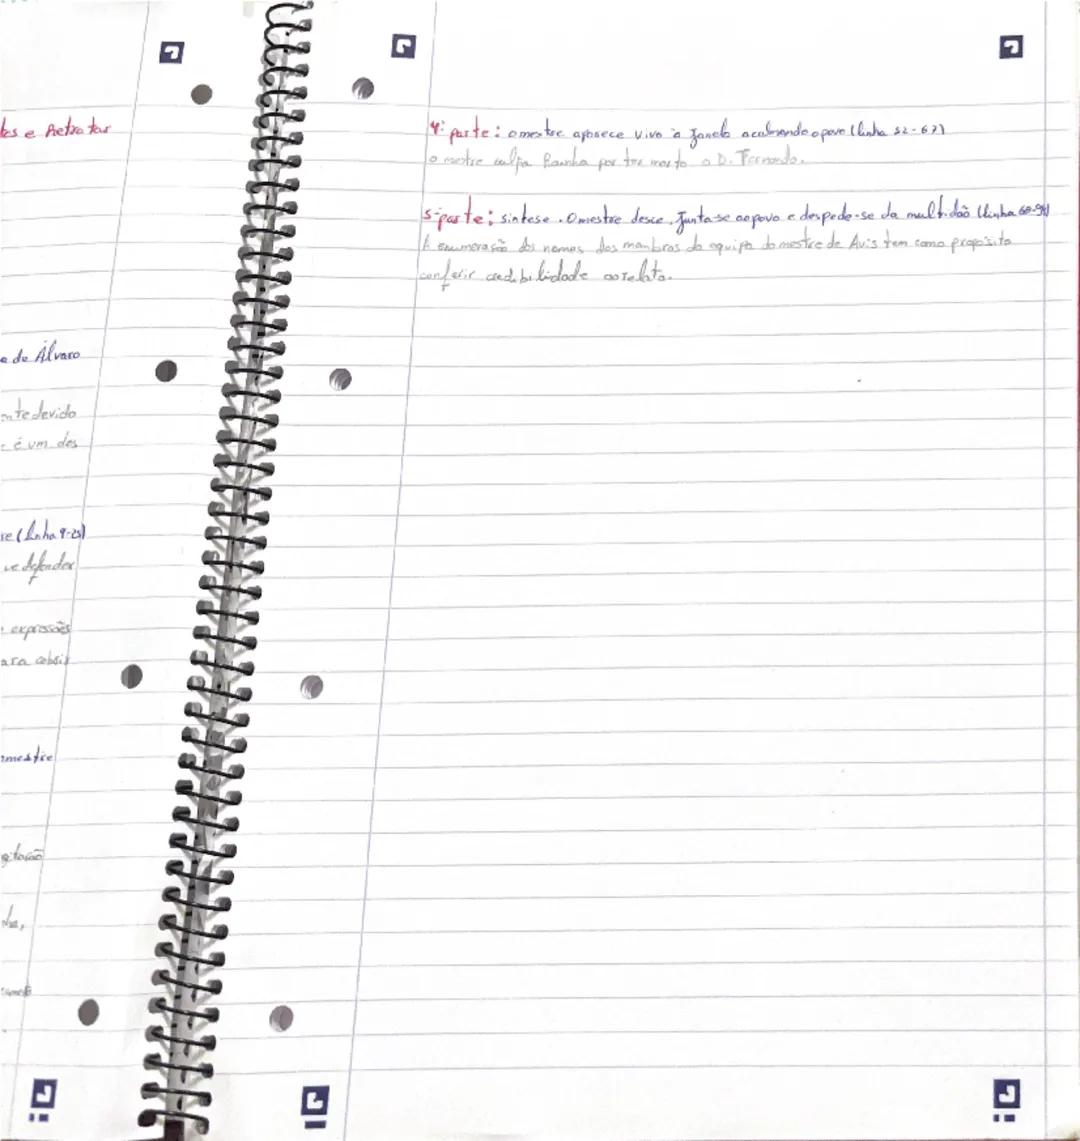 les e Retratar
e do Álvaro
ente devido
e é um des
re (linha 9-25)
ve defender
expressões
ara cobrir
mestre
gitação
4ª parte: o mestre aparece vivo à Janela acalmando o povo (linha 52-67)
o mestre culpa Rainha por ter morto o D. Fernando.
5ª parte: sintese. O mestre desce, Junta-se ao povo e despede-se da multidão (linha 68-94)
A enumeração dos nomes dos membros da equipa do mestre de Avis tem como proposito
conferir credibilidade ao relato.